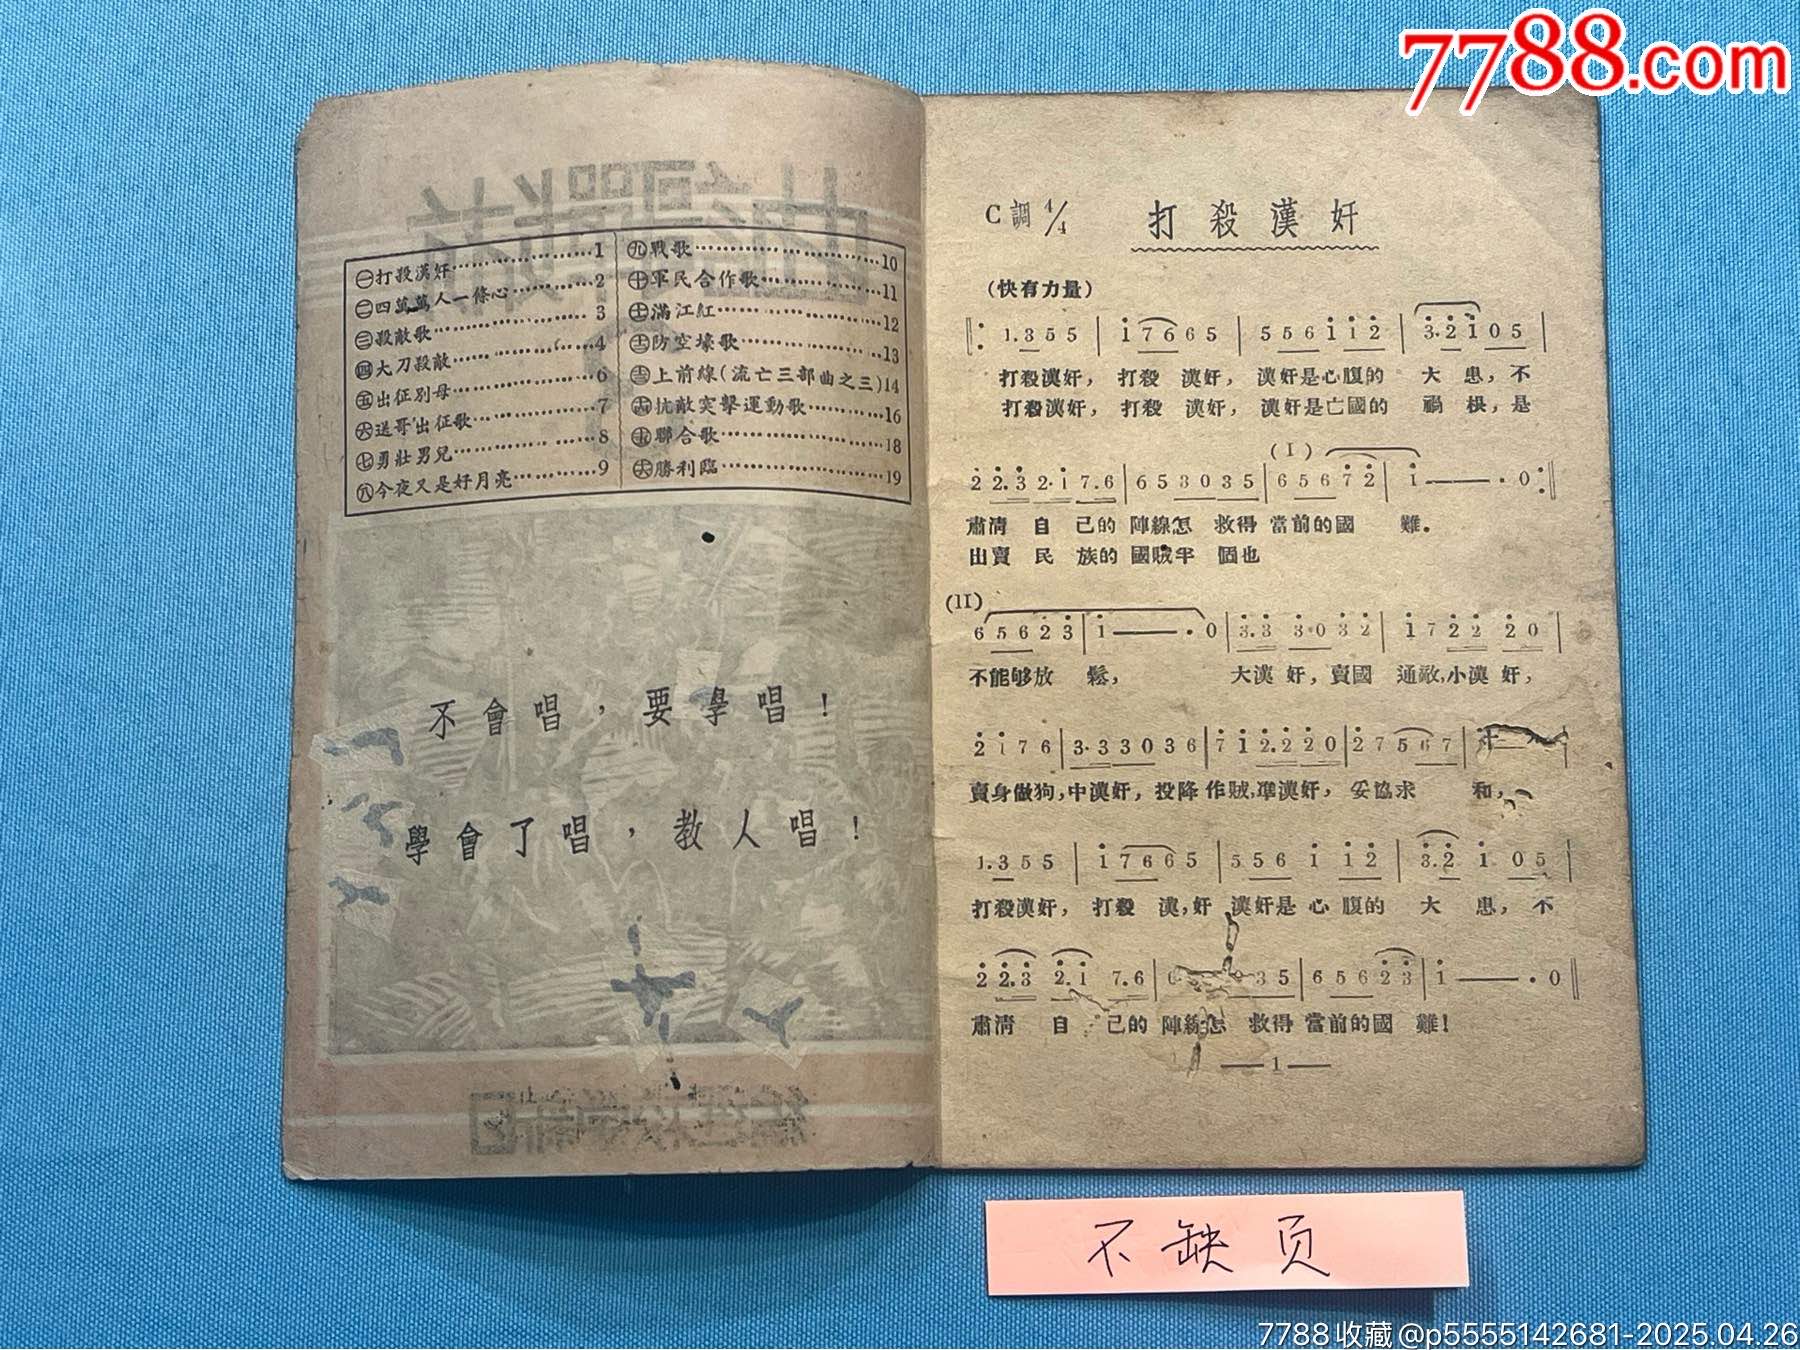 7788.com
㊀打殺漢奸 1
㊁四萬萬人一條心 2
㊂殺敵歌 3
㊃大刀殺敵 4
㊄出征別母 6
㊅送哥出征歌 7
㊆勇壯男兒 8
㊇今夜又是好月亮 9
㊈戰歌 10
㊉軍民合作歌 11
滿江紅 12
防空壕歌 13
上前線(流亡三部曲之三)14
抗敵突擊運動歌 16
聯合歌 18
勝利臨 19
不會唱，要學唱！
學會了唱，教人唱！
C調 4/4 打殺漢奸
(快有力量)
1.3 5 5 | i 7 6 6 5 | 5 5 6 i i 2 | 3.2 i 0 5 |
打殺漢奸，打殺 漢奸，漢奸是心腹的 大 患，不
打殺漢奸，打殺 漢奸，漢奸是亡國的 禍 根，是
(I)
2 2.3 2.i 7.6 | 6 5 3 0 3 5 | 6 5 6 7 2 | i — . 0 :||
肅清 自 己的 陣線怎 救得 當前的國 難。
出賣 民 族的 國賊半 個也
(II)
6 5 6 2 3 | i — . 0 | 3.3 3 0 3 2 | i 7 2 2 2 0 |
不能够放 鬆， 大漢 奸，賣國 通敵，小漢 奸，
2 i 7 6 | 3.3 3 0 3 6 | 7 i 2.2 2 0 | 2 7 5 6 7 |
賣身做狗，中漢奸，投降作賊，準漢奸，妥協求 和，
1.3 5 5 | i 7 6 6 5 | 5 5 6 i i 2 | 3.2 i 0 5 |
打殺漢奸，打殺 漢，奸 漢奸是 心 腹的 大 患，不
2 2.3 2.i 7.6 | 0 3 5 | 6 5 6 2 3 | i — . 0 ||
肅清 自 己的 陣線怎 救得 當前的國 難！
— 1 —
不缺页
7788收藏@p5555142681-2025.04.26